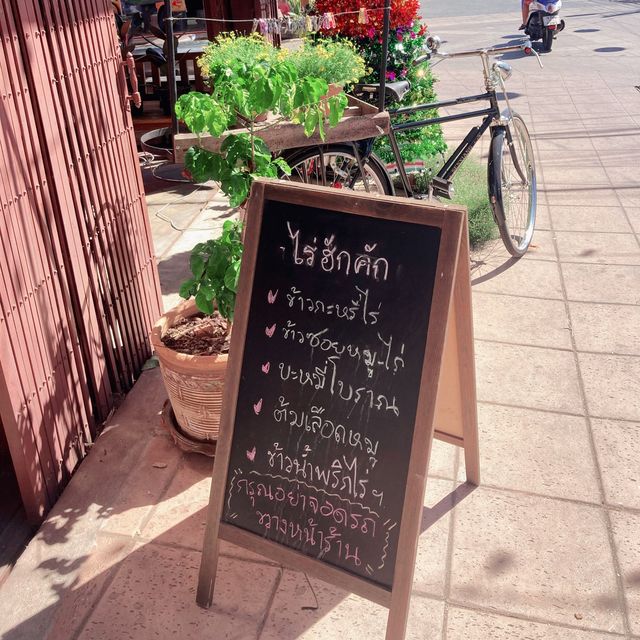 ไร่ฮักคัก
ข้าวกะหรี่ไก่
ข้าวซอยหมู-ไก่
บะหมี่โบราณ
ต้มเลือดหมู
ข้าวน้ำพริกไร่ฯ
กรุณอย่าจอดรถ
ขวางหน้าร้าน